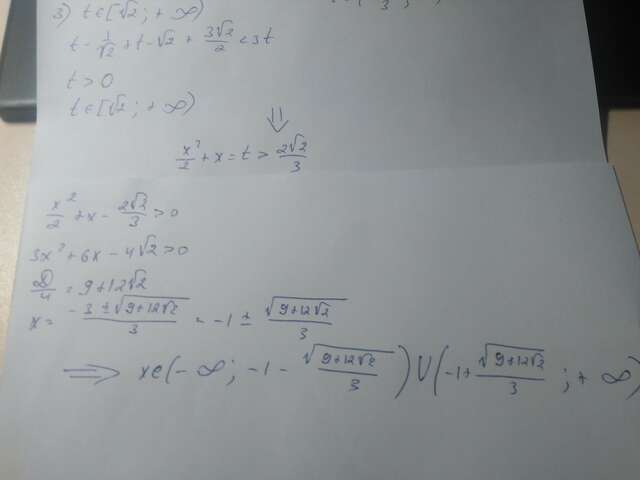 3) t∈[√2; +∞)
t - 1/√2 + t - √2 + 3√2/2 < 3t
t > 0
t∈[√2; +∞)
⇓
x²/2 + x = t > 2√2/3
x²/2 + x - 2√2/3 > 0
3x² + 6x - 4√2 > 0
D/4 = 9 + 12√2
x = (-3 ± √(9+12√2))/3 = -1 ± √(9+12√2)/3
⟹ x∈(-∞; -1 - √(9+12√2)/3) ∪ (-1 + √(9+12√2)/3; +∞)